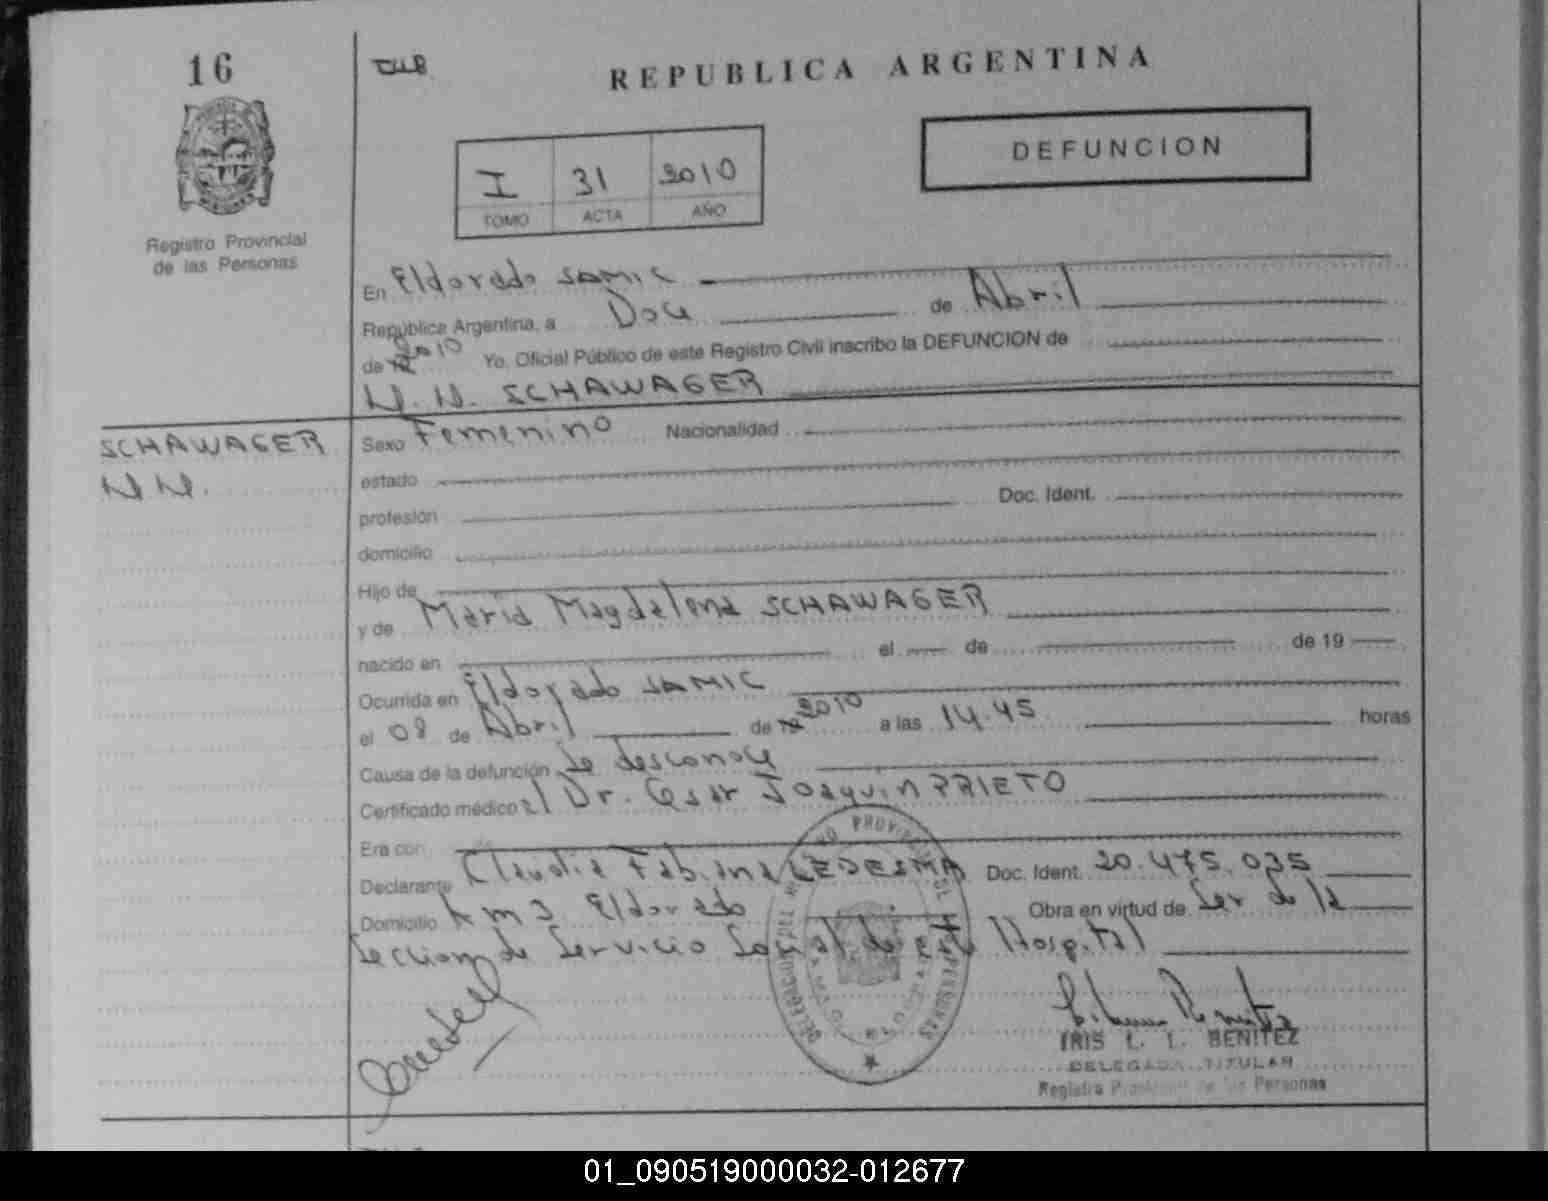 16
REPUBLICA ARGENTINA
DEFUNCION
I 31 2010
TOMO ACTA AÑO
Registro Provincial
de las Personas
En Eldorado SAMIC
República Argentina, a Doce de Abril
de 2010 Yo, Oficial Público de este Registro Civil inscribo la DEFUNCION de
N.N. SCHAWAGER
SCHAWAGER
N N.
Sexo Femenino Nacionalidad
estado
profesión Doc. Ident.
domicilio
Hijo de
y de Maria Magdalena SCHAWAGER
nacido en el de de 19
Ocurrida en Eldorado SAMIC
el 08 de Abril de 2010 a las 14.45 horas
Causa de la defunción Se desconoce
Certificado médico Dr. Cesar Joaquin PRIETO
Era con
Declarante Claudia Fabiana LEDESMA Doc. Ident. 20.475.035
Domicilio Km 3 Eldorado Obra en virtud de Ser de la
Seccion de Servicio Social de este Hospital
IRIS L. I. BENITEZ
DELEGADA TITULAR
Registro Provincial de las Personas
01_090519000032-012677